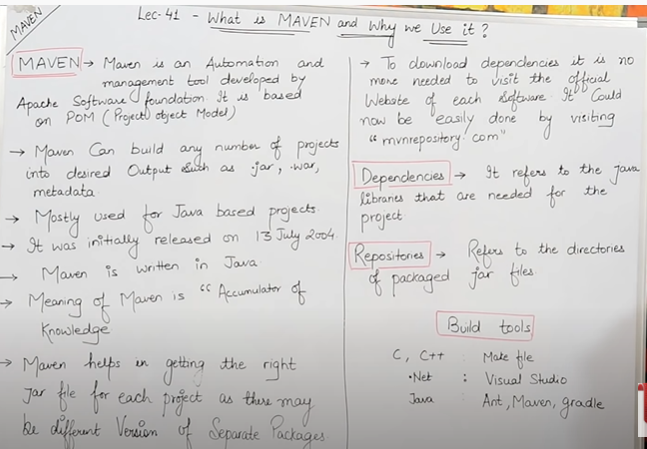 MAVEN
Lec-41 - What is MAVEN and Why we Use it?
MAVEN → Maven is an Automation and
management tool developed by
Apache Software foundation It is based
on POM (Project object Model)
→ Maven Can build any number of projects
into desired Output Such as jar, .war,
metadata.
→ Mostly used for Java based projects
→ It was initially released on 13 July 2004.
→ Maven is written in Java
→ Meaning of Maven is "Accumulator of
Knowledge
→ Maven helps in getting the right
Jar file for each project as there may
be different Version of Separate Packages
→ To download dependencies it is no
more needed to visit the official
Website of each software. It Could
now be easily done by visiting
"mvnrepository.com"
Dependencies → It refers to the Java
libraries that are needed for the
project
Repositories → Refers to the directories
of packaged jar files.
Build tools
C, C++ : Make file
.Net : Visual Studio
Java : Ant, Maven, gradle